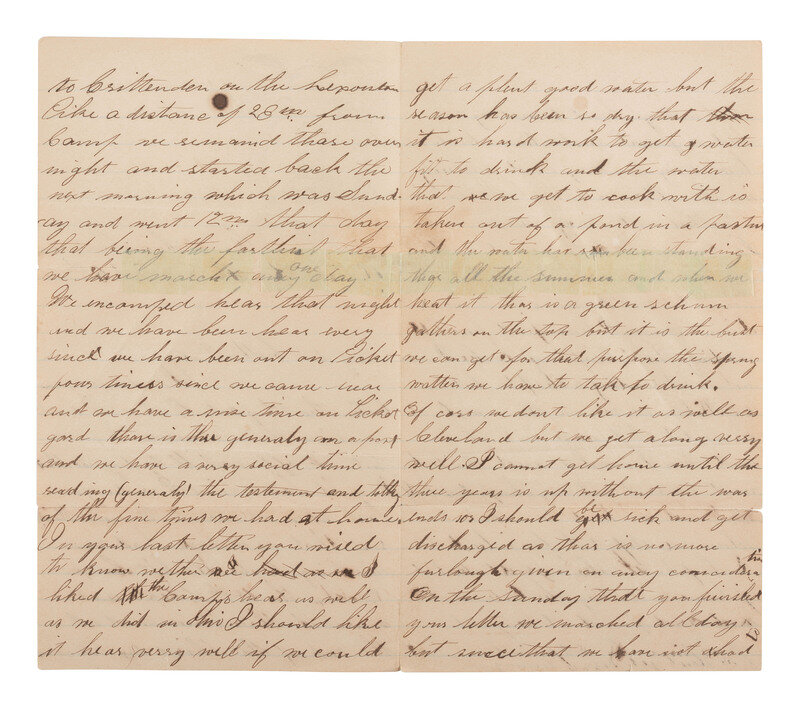 to Crittenden on the Lexonton
Pike a distance of 28 m from
Camp we remand thare over
night and started back the
next morning which was Sund
ay and went 12 m that day
that being the farthest that
we have march any one day
We encamped hear that night
and we have been hear every
since we have been out on Picket
four times since we came hear
and we have a nise time on Picket
gard thare is three generaly on a post
and we have a verry social time
reading (generaly) the testement and
of the fine times we had at home
In your last letter you wised
to know wether we had as I
liked the Camps hear as well
as we did in Ohio I should like
it hear verry well if we could
get a plent good water but the
season has been so dry that
it is hard work to get water
fit to drink and the water
that we get to cook with is
taken out of a pond in a pastur
and the water has been standing
thar all the summer and when we
heat it thar is a green schum
gathers on the top but it is the best
we can get for that purpose the spring
watter we have to tak to drink.
of cors we dont like it as well as
Cleveland but we get along verry
well I cannot get home until the
three years is up without the war
ends or I should be sick and get
discharged as thar is no more
furloughs given on any consideration
On the Sunday that you
your letter we marched all day
but since that we have not had